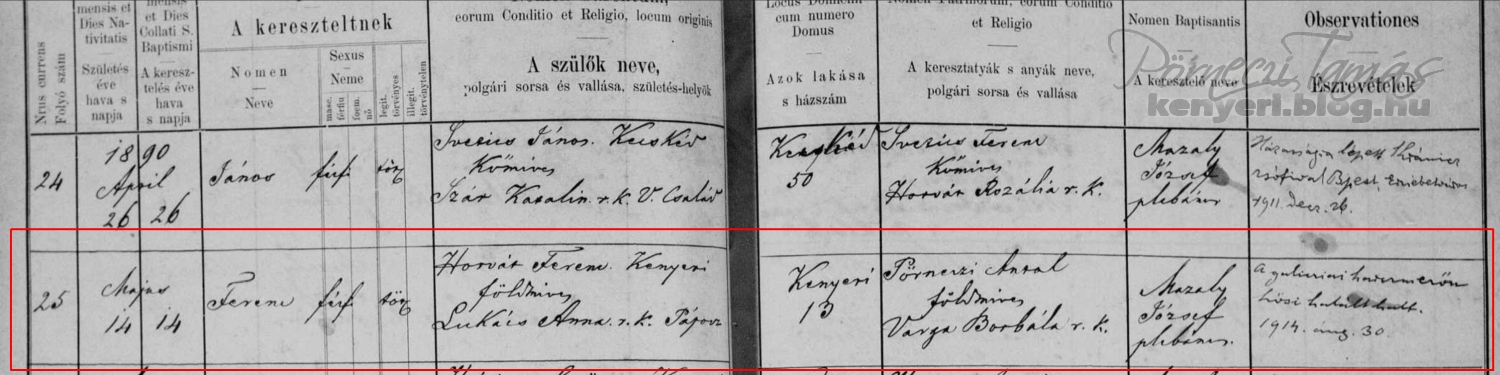 Ntus currens
Folyó szám
mensis et
Dies Na-
tivitatis
Születés
éve
hava s
napja
mensis
et Dies
Collati S.
Baptismi
A keresz-
telés éve
hava
s napja
A kereszteltnek
Nomen
Neve
Sexus
Neme
masc.
férfiu
foem.
nö
legit.
törvényes
illegit.
törvénytelen
eorum Conditio et Religio, locum originis
A szülők neve,
polgári sorsa és vallása, születés-helyök
Locus Domicilii
cum numero
Domus
Azok lakása
s házszám
Nomen Patrinorum, eorum Conditio
et Religio
A keresztatyák s anyák neve,
polgári sorsa és vallása
Nomen Baptisantis
A keresztelő neve
Observationes
Észrevételek
Pörneczi Tamás
kenyeri.blog.hu
24
1890
April
26 26
János
férfi
törv
Svezics János. Kecskéd
Kőmives
Szár Katalin. r. k. V. Család
Kecskéd
50
Svezics Ferenc
Kőmives
Horvát Rozália r. k.
Mazaly
József
plébános
Házasságra lépett
Bpest, Erzsébetváros
1911. decz. 26.
25
Majus
14 14
Ferenc
férfi
törv
Horvát Ferenc. Kenyeri
földmives
Lukács Anna. r. k. Pápocz
Kenyeri
13
Pörneczi Antal
földmives
Varga Borbála r. k.
Mazaly
József
plébános.
A galiciai harcmezőn
hősi halált halt.
1914. aug. 30.